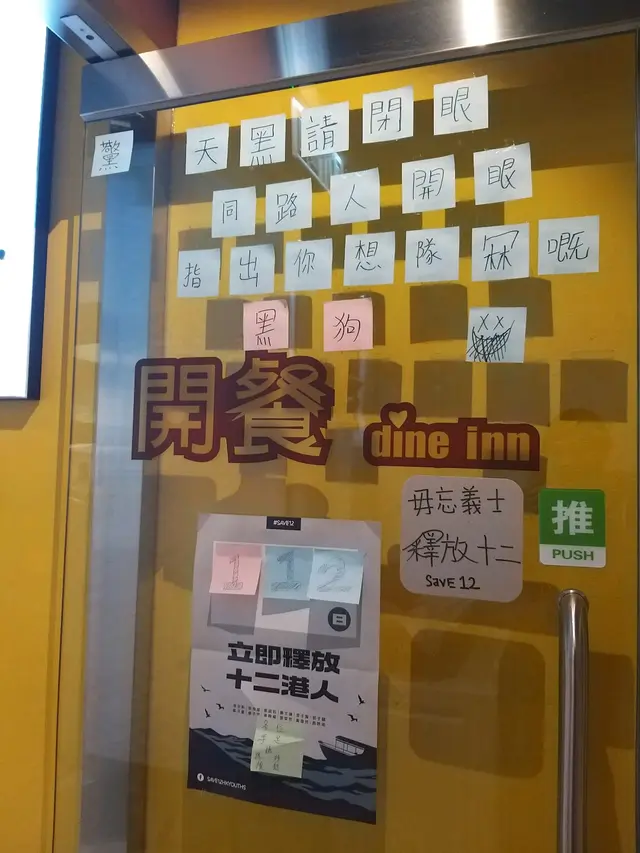 驚 天黑請閉眼
同路人開眼
指出你想隊冧嘅
黑狗
開餐 dine inn
毋忘義士
釋放十二
SAVE 12
推
PUSH
#SAVE12
112
日
立即釋放
十二港人
SAVE12HKYOUTHS